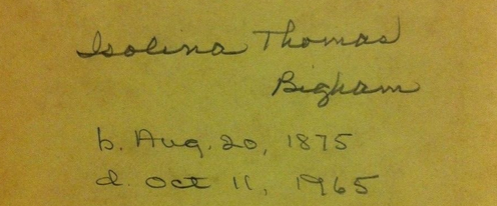 Isolina Thomas
Bigham
b. Aug. 20, 1875
d. Oct 11, 1965